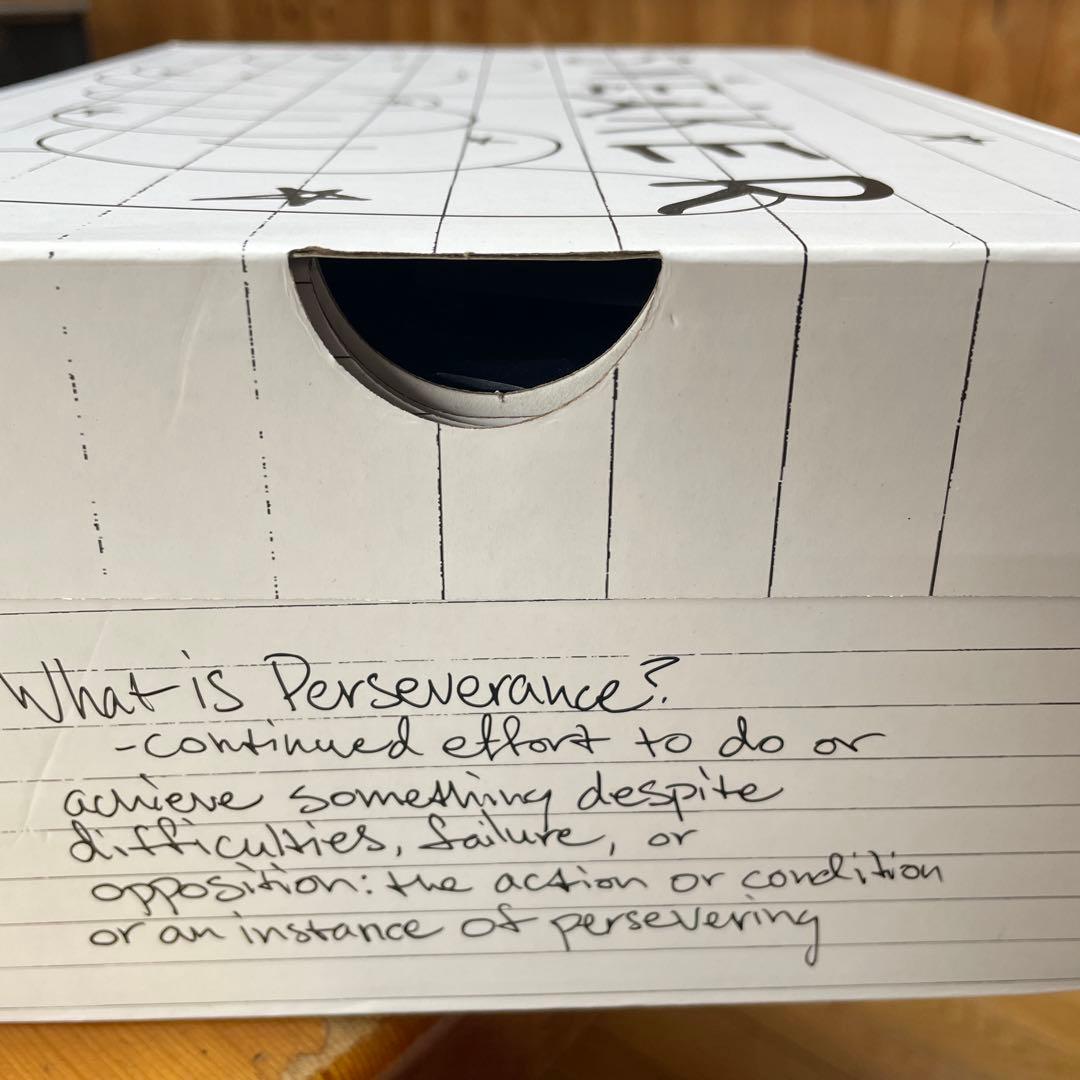 What is Perseverance?
-continued effort to do or
achieve something despite
difficulties, failure, or
opposition: the action or condition
or an instance of persevering